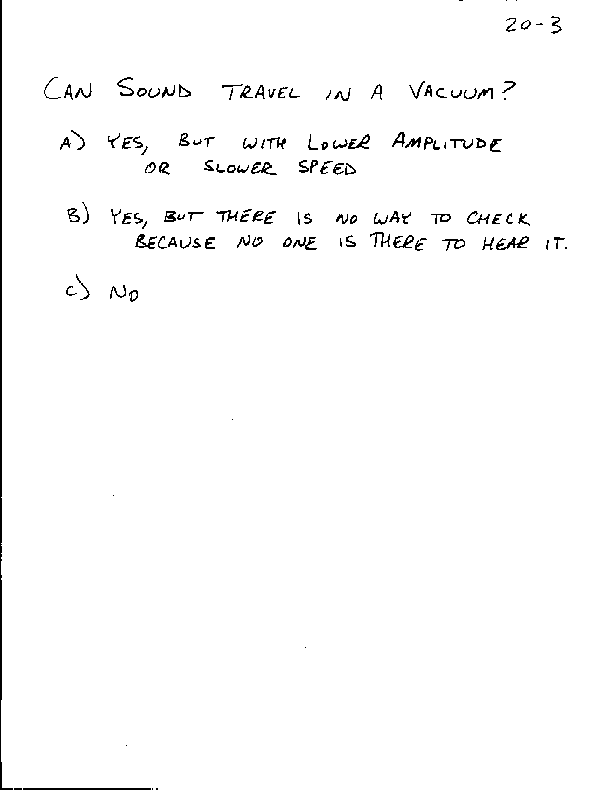 20-3
CAN SOUND TRAVEL IN A VACUUM?
A) YES, BUT WITH LOWER AMPLITUDE
OR SLOWER SPEED
B) YES, BUT THERE IS NO WAY TO CHECK
BECAUSE NO ONE IS THERE TO HEAR IT.
C) NO